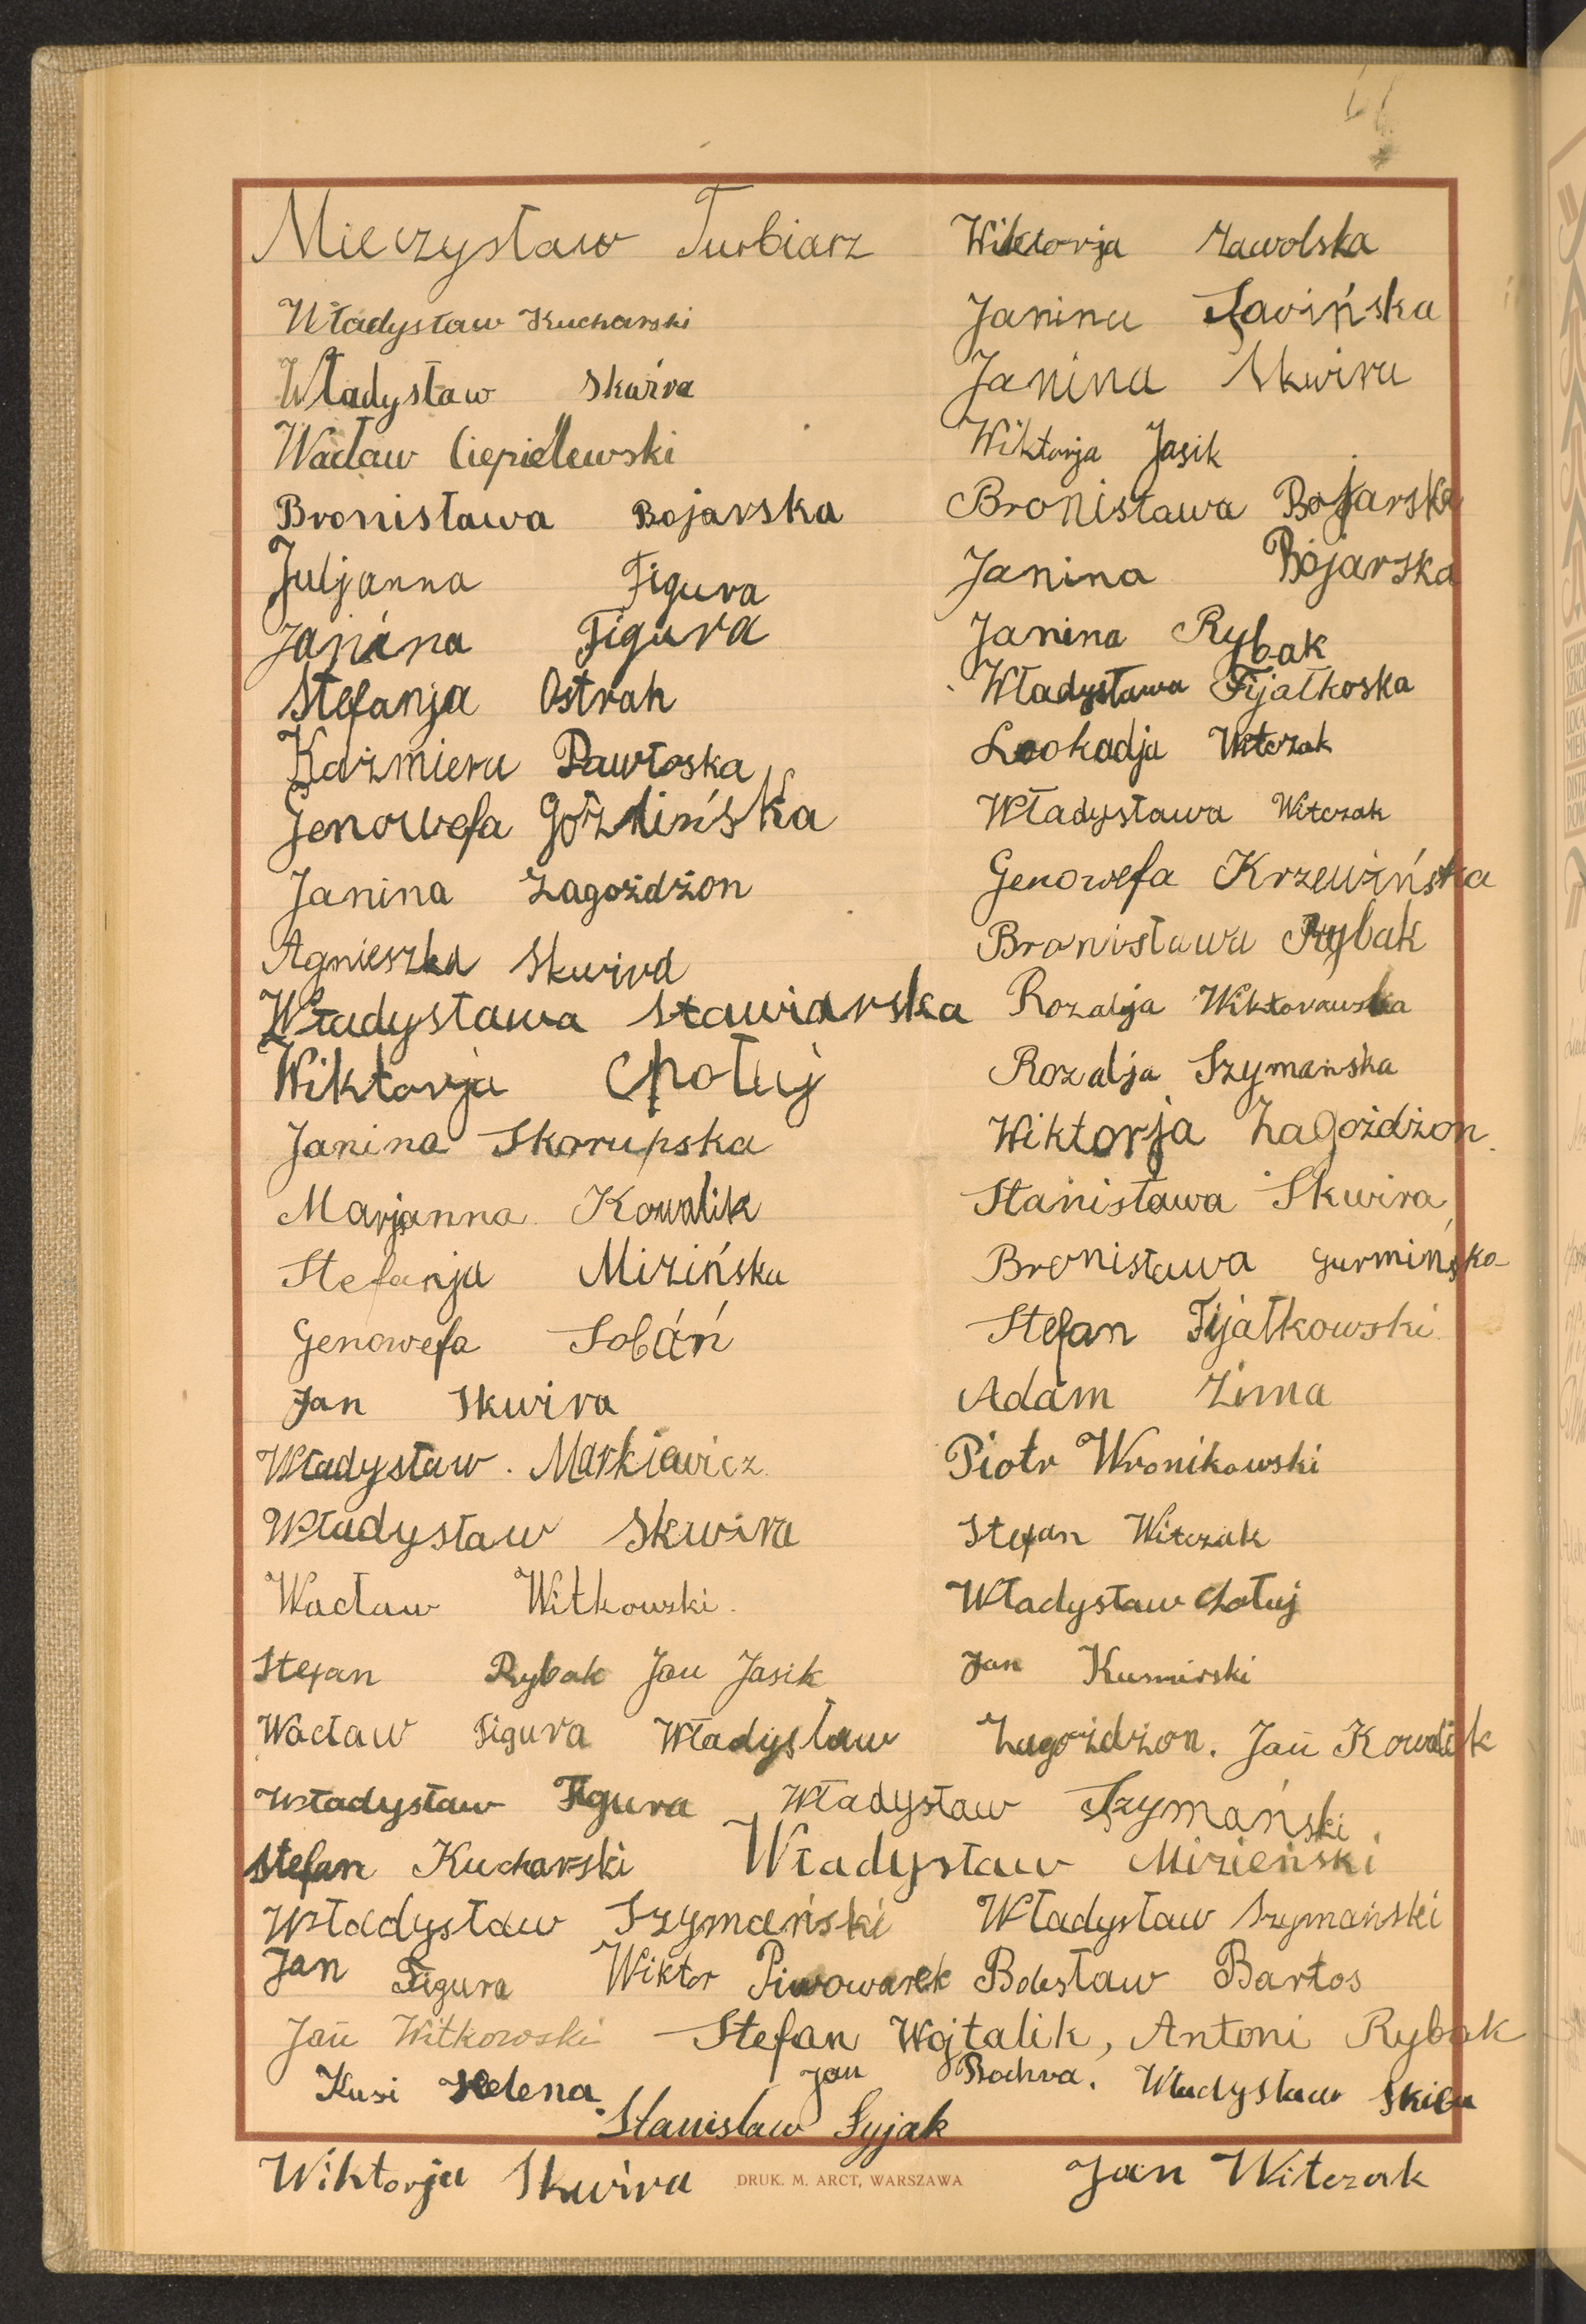 Mieczysław Turbiarz Wiktorja Zawolska
Władysław Kucharski Janina Sawińska
Władysław Skwira Janina Skwira
Wacław Ciepielewski Wiktorja Jasik
Bronisława Bojarska Bronisława Bojarska
Juljanna Figura Janina Bojarska
Janina Figura Janina Rybak
Stefanja Ostrah Władysława Fijałkoska
Kazmiera Pawłoska Leokadja Witczak
Genowefa Gozdińska Władysława Witczak
Janina Zagożdżon Genowefa Krzewińska
Agnieszka Skwira Bronisława Rybak
Władysława Stawiarska Rozalja Wiktorowska
Wiktorja Chołuj Rozalja Szymańska
Janina Skorupska Wiktorja Zagożdżon
Marjanna Kowalik Stanisława Skwira
Stefanja Mizińska Bronisława Gurmińska
Genowefa Sobáń Stefan Fijałkowski
Jan Skwira Adam Zima
Władysław Markiewicz Piotr Wronikowski
Władysław Skwira Stefan Witczak
Wacław Witkowski Władysław Chołuj
Stefan Rybak Jan Jasik Jan Kusmirski
Wacław Figura Władysław Zagożdżon. Jan Kowalik
Władysław Figura Władysław Szymański
Stefan Kucharski Władysław Mizieński
Władysław Szymański Władysław Szymański
Jan Figura Wiktor Piwowarek Bolesław Bartos
Jan Witkowski Stefan Wojtalik, Antoni Rybak
Kusi Helena Jan Bochra. Władysław Skiba
Stanisław Syjak
Wiktorja Skwira DRUK. M. ARCT, WARSZAWA Jan Witczak